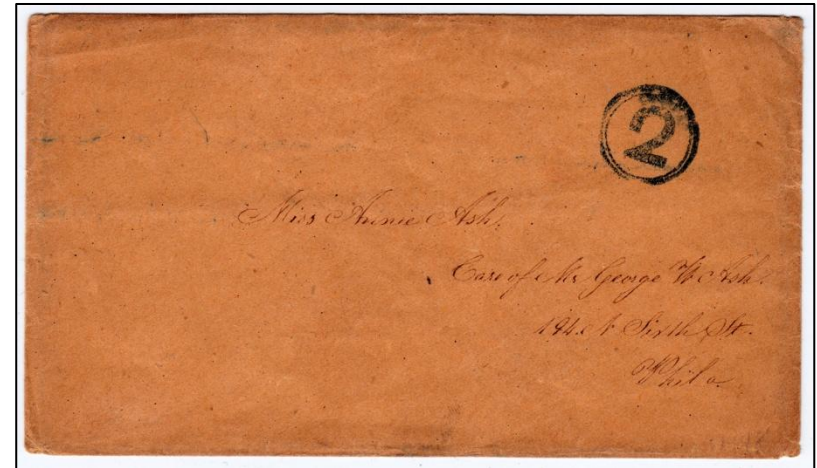 2
Miss Annie Ash,
Care of Mr George W Ash.
194 N Sixth St.
Phila